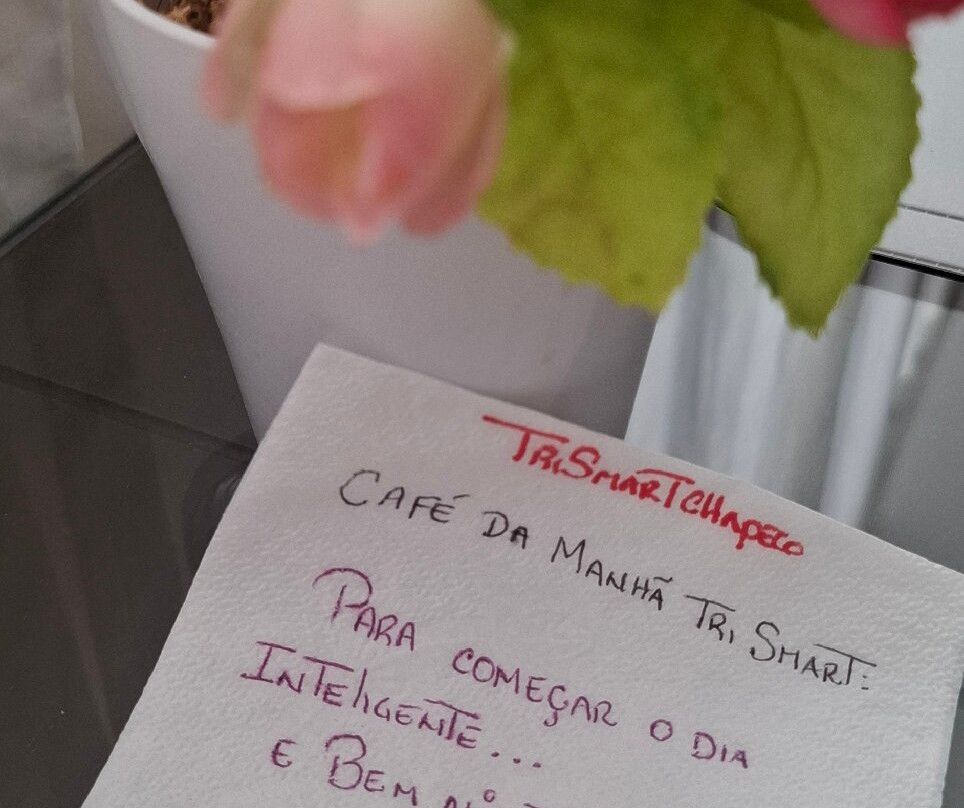 TRiSMARTCHAPECO
CAFÉ DA MANHÃ TRi SMART:
PARA COMEÇAR O DIA
INTEliGENTE...
E BEM